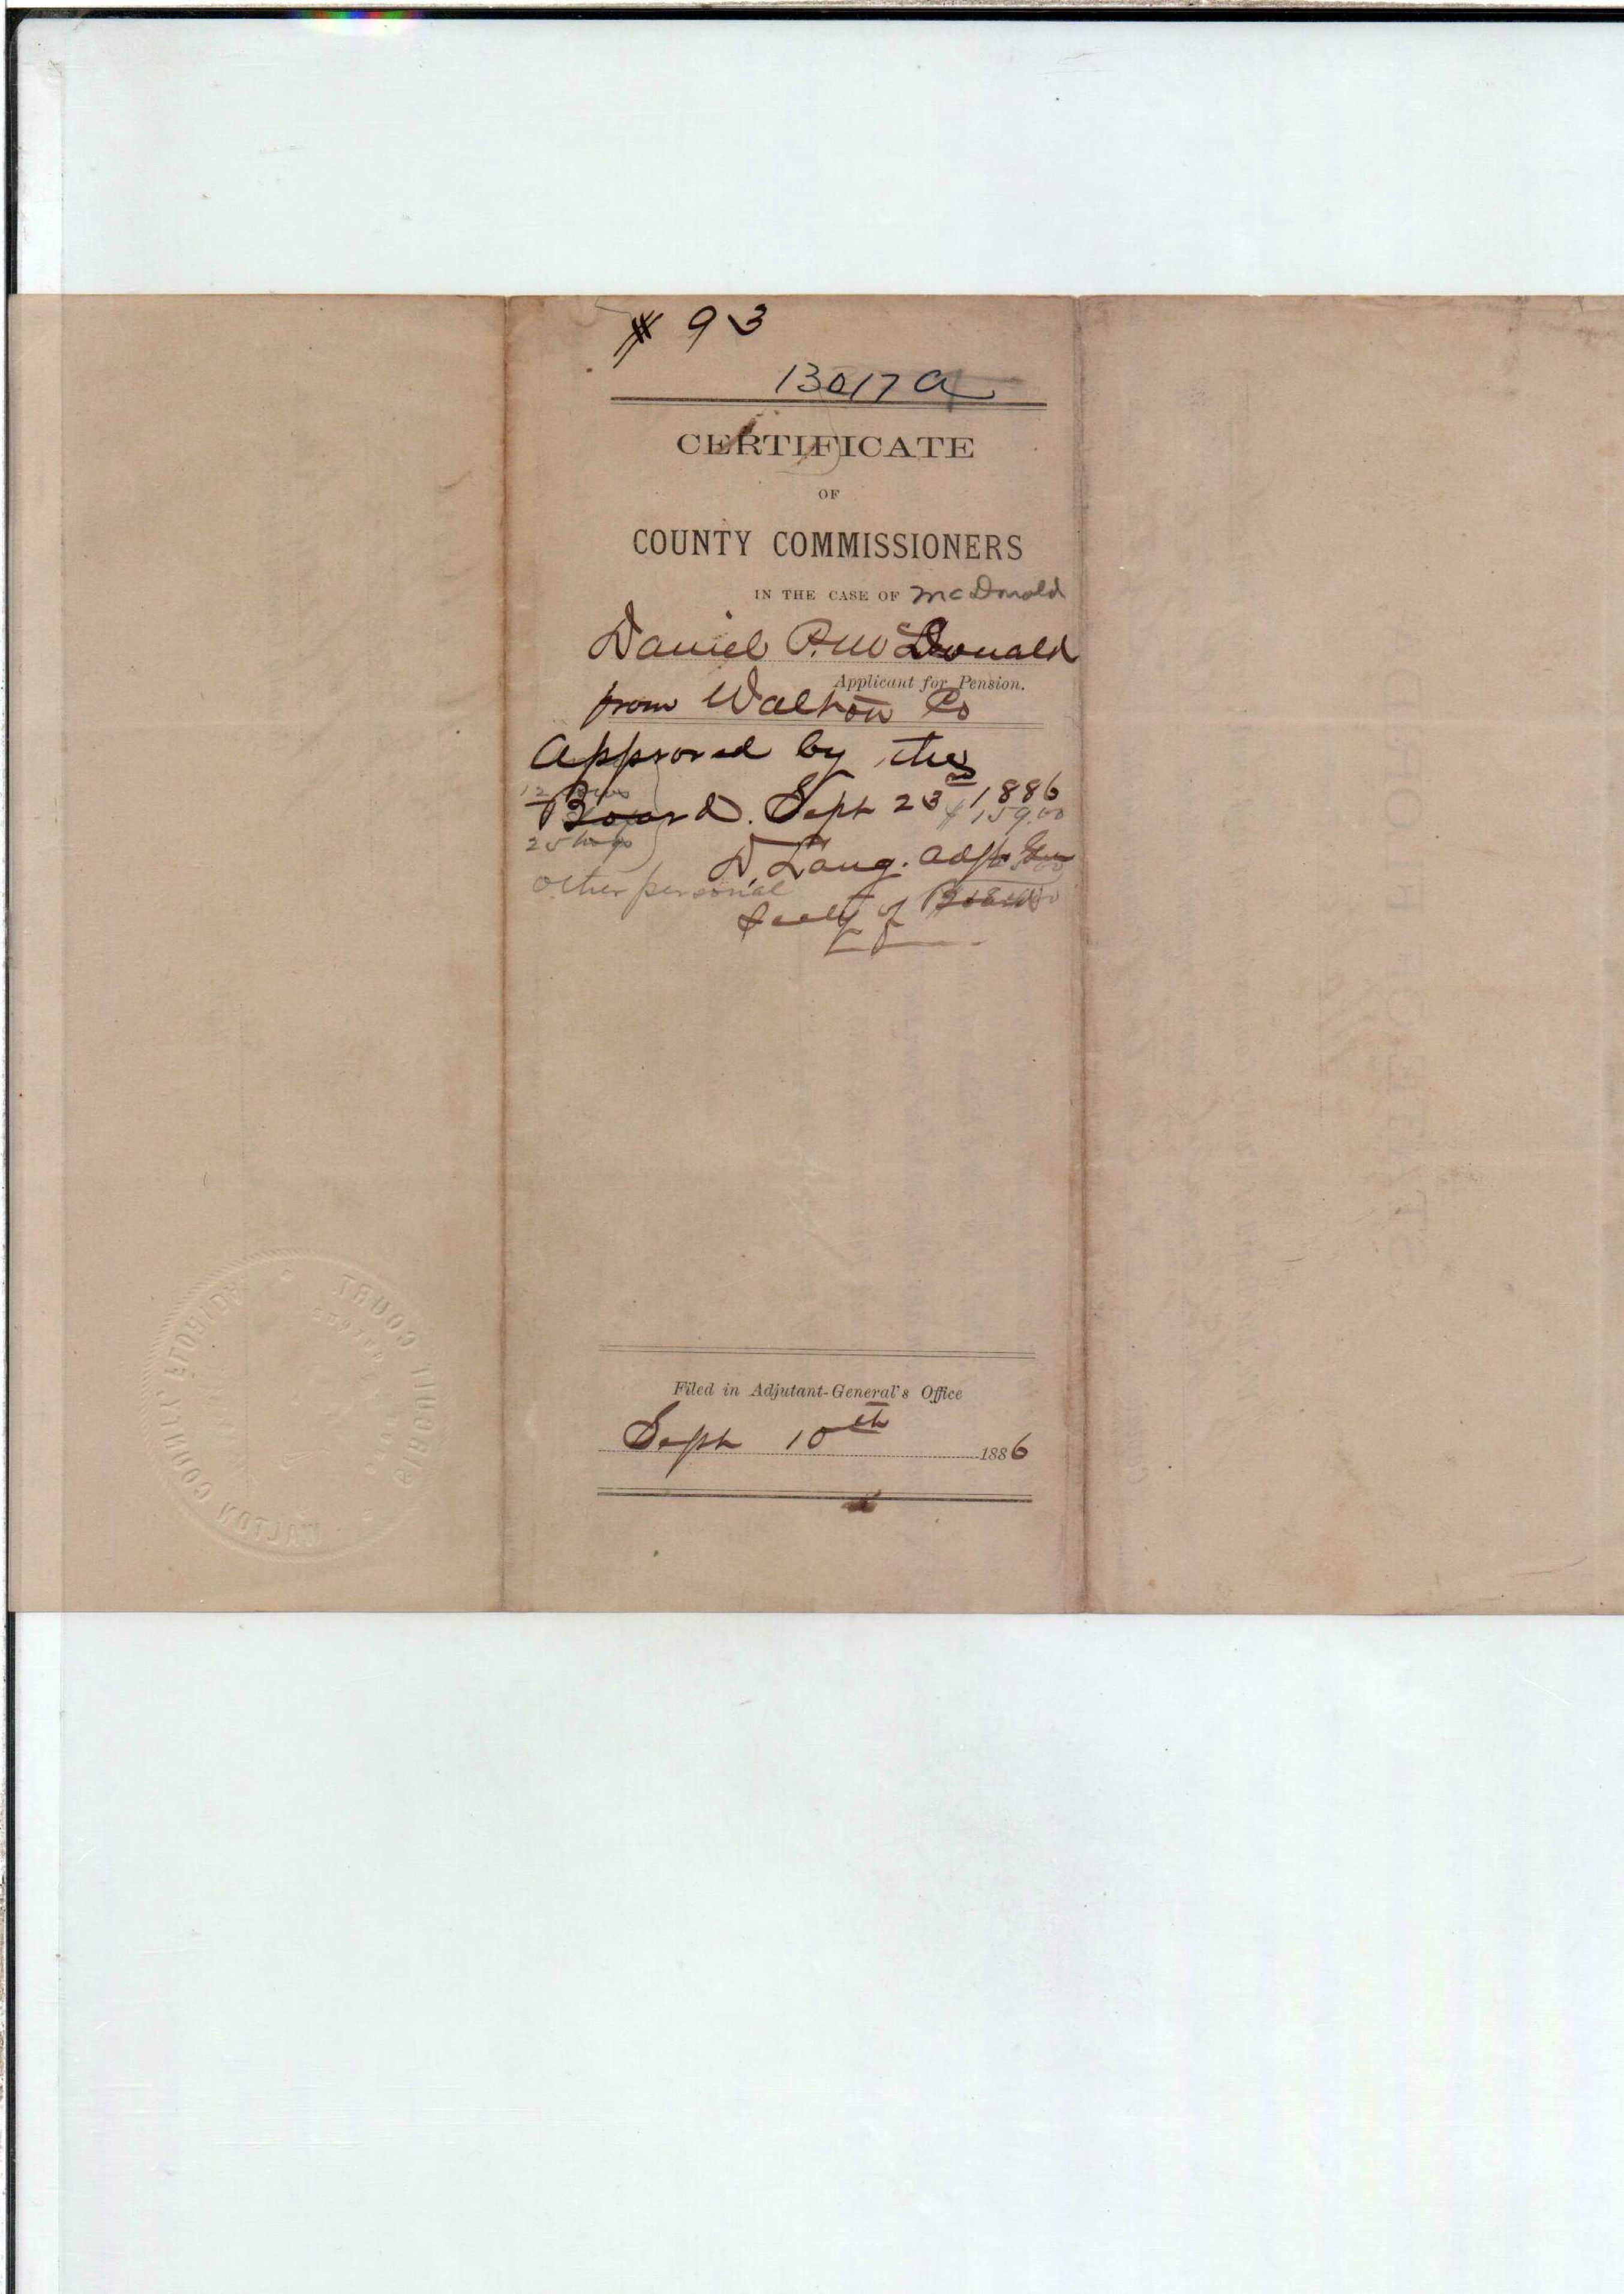 # 93
13017 a
CERTIFICATE
OF
COUNTY COMMISSIONERS
IN THE CASE OF McDonald
Daniel P. McDonald
Applicant for Pension.
from Walton Co
Approved by the
Board. Sept 23rd 1886
$159.00
25 hogs
D. Lang. Adjt Gen
Other personal
Secty of Board
Filed in Adjutant-General's Office
Sept 10th 1886
CIRCUIT COURT
WALTON COUNTY FLORIDA